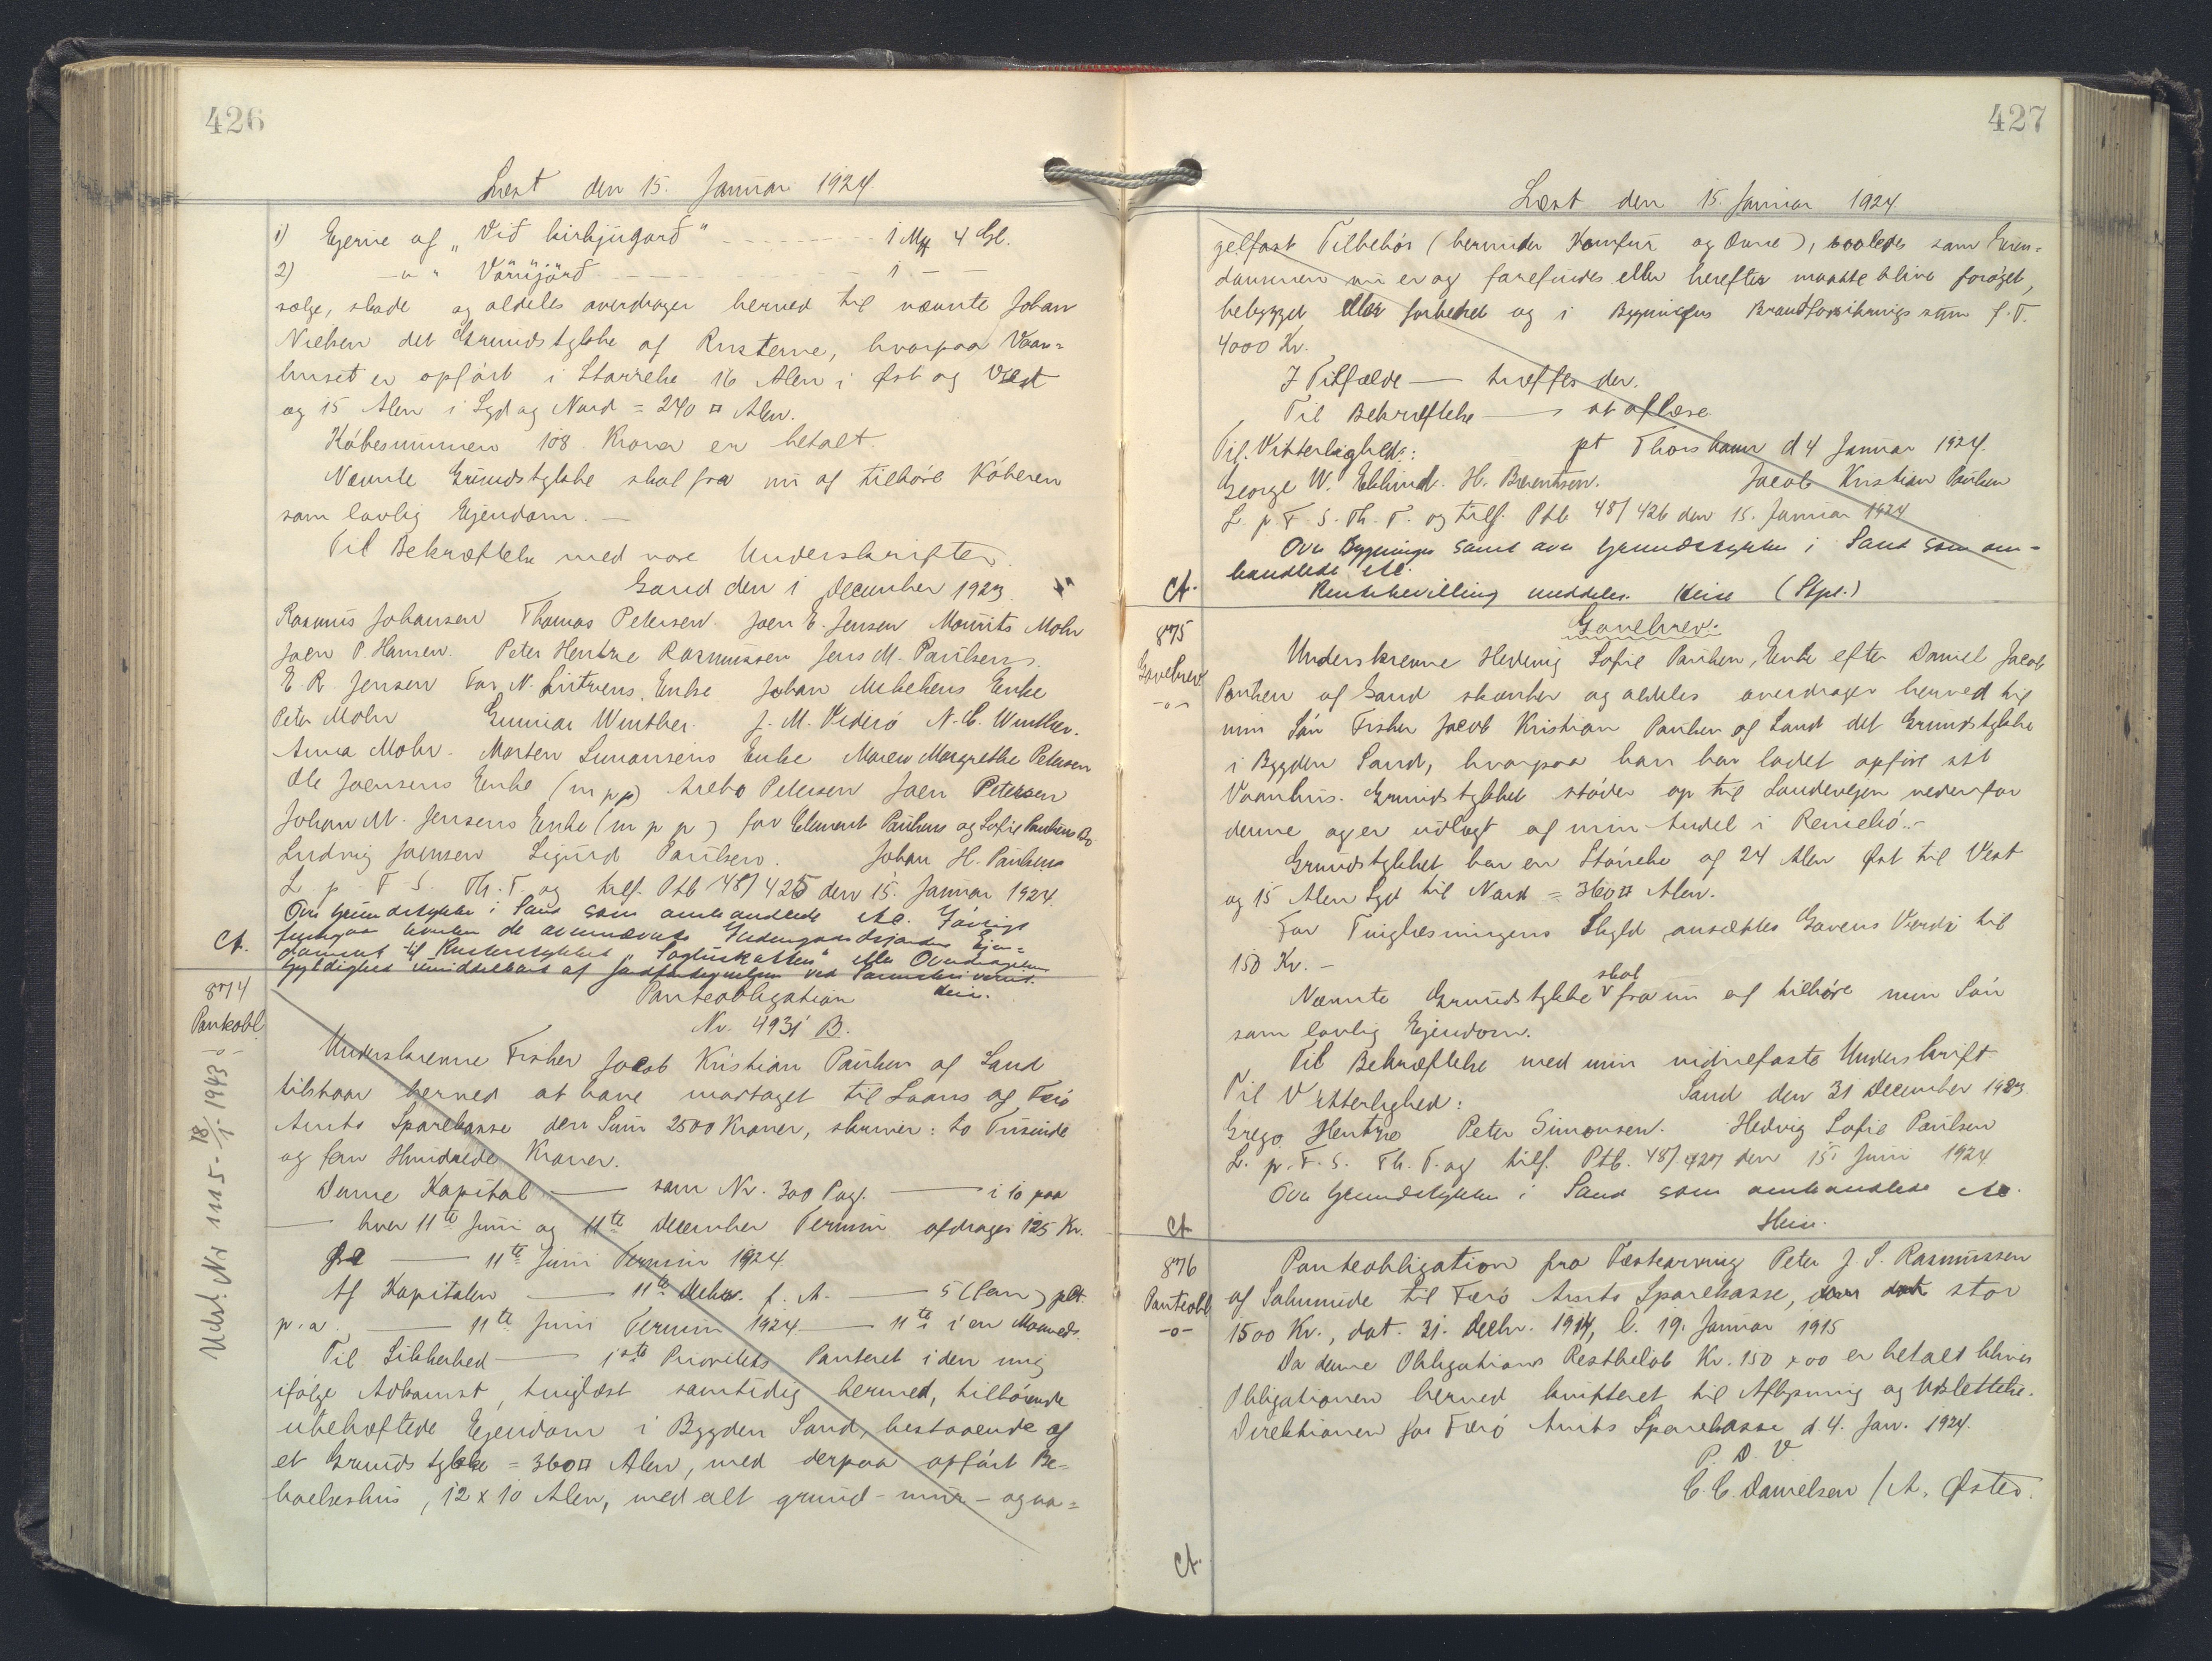 426
Læst den 15. Januar 1924.
1) Ejerne af "Við kirkjugarð" 1 Mk 4 Gl.
2) -"- " Vørujørð 1 -
sælge, skøde og aldeles overdrager herved til nævnte Johan
Nielsen det Grundstykke af Rusterne, hvorpaa Vaan-
huset er opført i Størrelse 16 Alen i Øst og Vest
og 15 Alen i Syd og Nord = 240 □ Alen.
Købesummen 108 Kroner er betalt.
Nævnte Grundstykke skal fra nu af tilhøre Køberen
som lovlig Ejendom. —
Til Bekræftelse med vore Underskrifter.
Sand den 1 December 1923.
Rasmus Johansen Thomas Petersen. Joen E. Jensen Mourits Mohr
Joen P. Hansen. Peter Hentze Rasmussen Jens M. Paulsen.
E. R. Jensen For N. Enke Johan Mikkelsens Enke
Peter Mohr Gunnar Winther. J. M. Viderö N. C. Winther.
Anna Mohr. Morten Simonsens Enke Maren Margrethe Petersen
Ole Joensens Enke (m p p) Petersen Joen Petersen
Johan M. Jensens Enke (m p p) for Clement Paulsens og Sofie Paulsens Bo
Ludvig Joensen Sigurd Paulsen. Johan H. Paulsen
L. p. F. S. Th. T. og tilf. Ptb 48/425 den 15. Januar 1924.
Over Grundstykke i Sand som omhandlede Ao. Iøvrigt
fremgaar hverken de ovennævnte Ejen-
domsret til Rusterstykket eller Overdragelsens
Gyldighed umiddelbart af ved
Heise.
Ct.
874
Panteobl.
-o-
Udsl. Nr 1115 - 18/1 - 1943
Panteobligation
Nr. 4931 B.
Underskrevne Fisker Jacob Kristian Paulsen af Sand
tilstaar herved at have modtaget til Laans af Færø
Amts Sparekasse den Sum 2500 Kroner, skriver: to Tusinde
og fem Hundrede Kroner.
Denne Kapital — som Nr. 300 Pag. — i to paa
— hver 11te Juni og 11te December Termin afdrages 125 Kr.
fra — 11te Juni Termin 1924.
Af Kapitalen — 11te Decbr. f. A. — 5 (fem) pCt.
p. a. — 11te Juni Termin 1924 — 11te i en Maaneds.
Til Sikkerhed — 1ste Prioritets Panteret i den mig
ifølge Adkomst, tinglæst samtidig hermed, tilhørende
ubehæftede Ejendom i Bygden Sand, bestaaende af
et Grundstykke = 360 □ Alen, med derpaa opført Be-
boelseshus, 12 x 10 Alen, med alt grund- mur- og na-
427
Læst den 15. Januar 1924.
gelfast Tilbehør (herunder Komfur og Ovne), saaledes som Ejen-
dommen nu er og forefindes eller herefter maatte blive forøget,
bebygget eller forbedret og i Bygningens Brandforsikringssum f. T.
4000 Kr.
I Tilfælde — træffes der.
Til Bekræftelse — at aflæse
Til Vitterlighed: pt Thorshavn d 4 Januar 1924.
George W. Eklund. H. Berentsen. Jacob Kristian Paulsen
L. p F. S. Th. T. og tilf. Ptb 48/426 den 15. Januar 1924
Over Bygninger samt over Grundstykke i Sand som om-
handlede Ao.
Rentebevilling meddeles. Heise (Stpl.)
Ct.
875
Gavebrev
-o-
Gavebrev.
Underskrevne Hedevig Sofie Paulsen, Enke efter Daniel Jacob
Paulsen af Sand skænker og aldeles overdrager herved til
min Søn Fisker Jacob Kristian Paulsen af Sand det Grundstykke
i Bygden Sand, hvorpaa han har ladet opføre sit
Vaanhus. Grundstykket støder op til Landevejen nedenfor
denne og er udlagt af min Andel i .-
Grundstykket har en Størrelse af 24 Alen Øst til Vest
og 15 Alen Syd til Nord = 360 □ Alen.
For Tinglæsningens Skyld ansættes Gavens Værdi til
150 Kr. -
Nævnte Grundstykke skal fra nu af tilhøre min Søn
som lovlig Ejendom.
Til Bekræftelse med min vidnefaste Underskrift
Til Vitterlighed: Sand den 31 December 1923.
Grego Hentze Peter Simonsen. Hedvig Sofie Paulsen
L. p. F. S. Th. T. og tilf. Ptb. 48/427 den 15 Juni 1924
Over Grundstykke i Sand som omhandlede Ao.
Heise.
Ct
876
Panteobl
-o-
Panteobligation fra Peter J. S. Rasmussen
af til Færø Amts Sparekasse, stor
1500 Kr., dat. 31. Decbr. 1914, l. 19. Januar 1915
Da denne Obligations Restbeløb Kr. 150 x 00 er betalt bliver
Obligationen herved kvitteret til Aflysning og Udslettelse.
Direktionen for Færø Amts Sparekasse d. 4. Jan. 1924.
P. D. V.
C. C. Danielsen / A. Østed.
Ct.